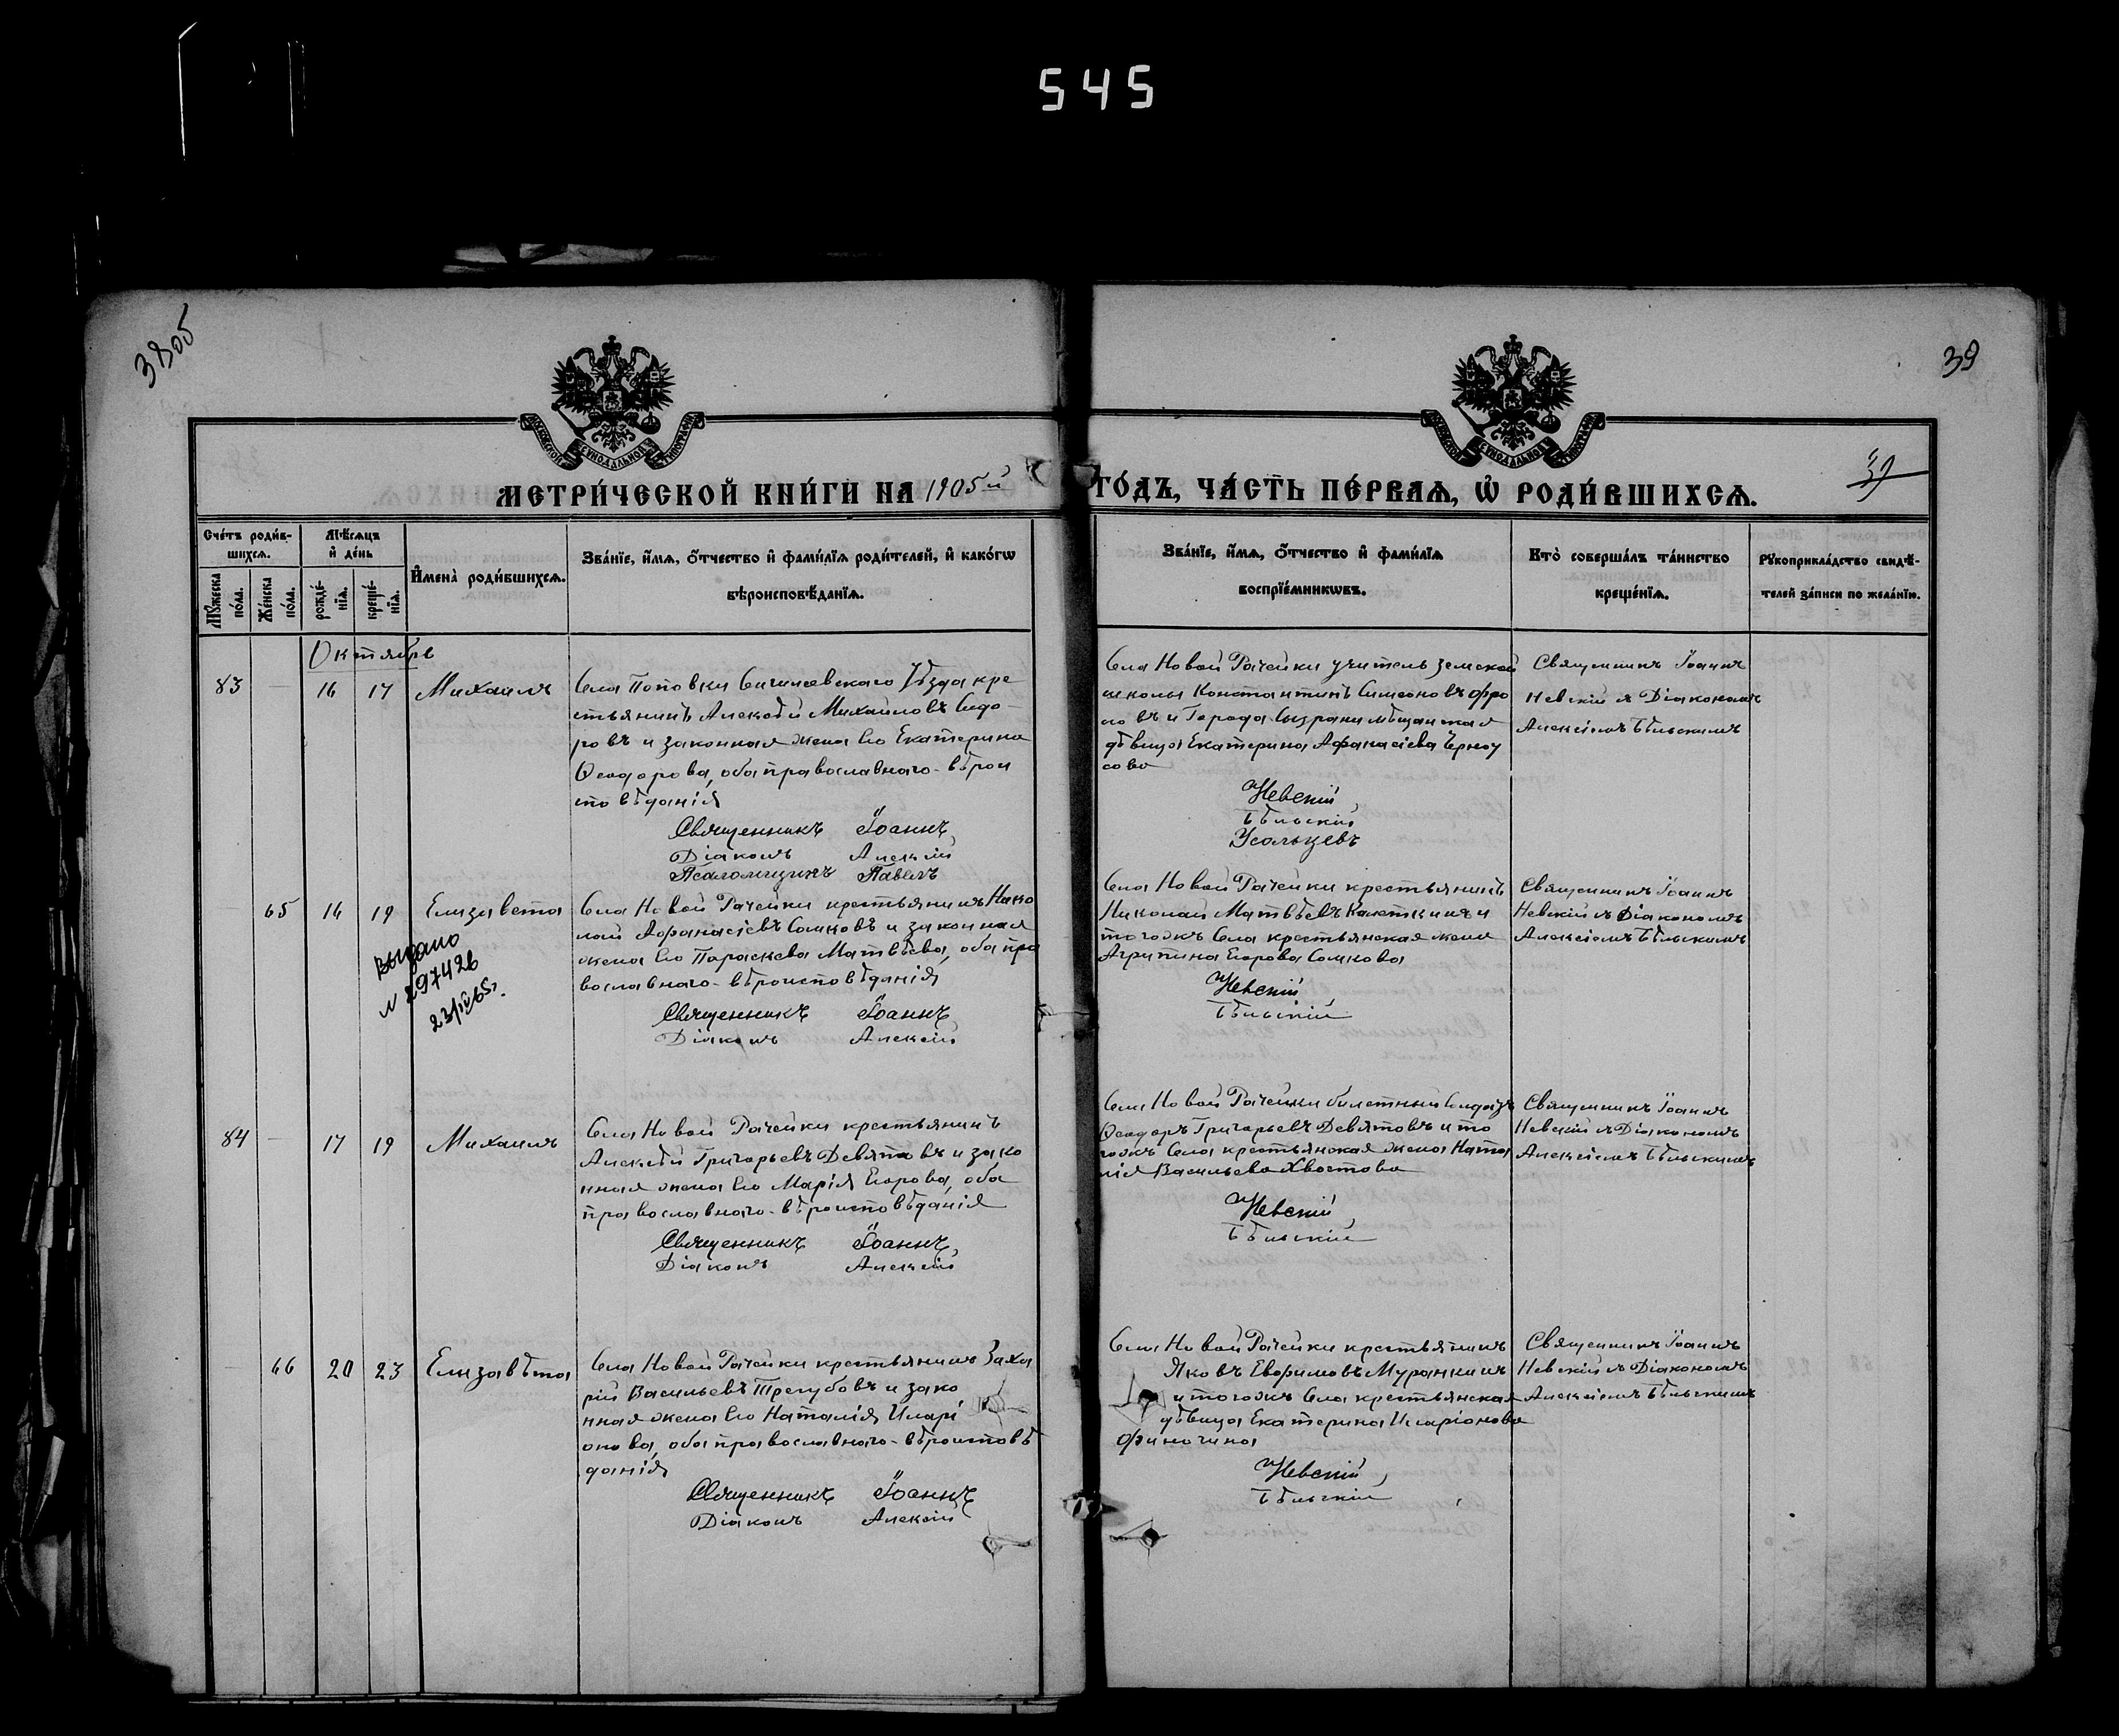 545
38об
39
39
МОСКОВСКОЙ СѴНОДАЛЬНОЙ ТИПОГРАФІИ
МОСКОВСКОЙ СѴНОДАЛЬНОЙ ТИПОГРАФІИ
МЕТРИ́ЧЕСКОЙ КНИ́ГИ НА 1905й ГО́ДЪ, ЧА́СТЬ ПЕ́РВАѦ, Ѡ РОДИ́ВШИХСѦ.
Сче́тъ роди́в-
шихсѧ.
Мꙋ́жеска
по́ла.
Же́нска
по́ла.
Мѣ́сѧцъ
и де́нь
рожде́-
нїѧ.
креще́-
нїѧ.
Имена̀ роди́вшихсѧ.
Зва́нїе, и́мѧ, ѻ́тчество и фами́лїѧ роди́телей, и како́гѡ
вѣроисповѣ́данїѧ.
Зва́нїе, и́мѧ, ѻ́тчество и фами́лїѧ
воспрїе́мникѡвъ.
Кто̀ соверша́лъ та́инство
креще́нїѧ.
Рꙋкоприкла́дство свидѣ́-
телей за́писи по жела́нїю.
Октябрь
83 — 16 17 Михаилъ
Села Поповки Сенгилеевскаго Уѣзда кре
стьянинъ Алексѣй Михайловъ Сидо-
ровъ и законная жена его Екатерина
Ѳеодорова, оба православнаго-вѣрои
сповѣданія
Священникъ Іоаннъ
Діаконъ Алексій
Псаломщикъ Павелъ
Села Новой Рачейки учитель земской
школы Константинъ Симеоновъ Фро
ловъ и Города Сызрани мѣщанская
дѣвица Екатерина Афанасіева Черноу
сова
Невскій
Бѣльскій
Усольцевъ
Священникъ Іоаннъ
Невскій съ Діакономъ
Алексіемъ Бѣльскимъ
— 65 16 19 Елизавета
выдано
N 297426
23/IV 65г.
Села Новой Рачейки крестьянинъ Нико
лай Афанасіевъ Сомковъ и законная
жена его Параскева Матвѣева, оба пра
вославнаго-вѣроисповѣданія
Священникъ Іоаннъ
Діаконъ Алексій
Села Новой Рачейки крестьянинъ
Николай Матвѣевъ Калеткинъ и
тогожъ Села крестьянская жена
Агрипина Егорова Сомкова
Невскій
Бѣльскій
Священникъ Іоаннъ
Невскій съ Діакономъ
Алексіемъ Бѣльскимъ
84 — 17 19 Михаилъ
Села Новой Рачейки крестьянинъ
Алексѣй Григорьевъ Девятовъ и зако
нная жена его Марія Егорова, оба
православнаго-вѣроисповѣданія
Священникъ Іоаннъ
Діаконъ Алексій
Села Новой Рачейки билетный Солдатъ
Ѳеодоръ Григорьевъ Девятовъ и то
гожъ Села крестьянская жена Ната
лія Васильева Хвостова
Невскій
Бѣльскій
Священникъ Іоаннъ
Невскій съ Діакономъ
Алексіемъ Бѣльскимъ
— 66 20 23 Елизавѣта
Села Новой Рачейки крестьянинъ Заха
рій Васильевъ Трегубовъ и зако
нная жена его Наталія Иларі
онова, оба православнаго-вѣроисповѣ
данія
Священникъ Іоаннъ
Діаконъ Алексій
Села Новой Рачейки крестьянинъ
Яковъ Евфимовъ Муранкинъ
и тогожъ Села крестьянская
дѣвица Екатерина Иларіонова
Финогина
Невскій
Бѣльскій
Священникъ Іоаннъ
Невскій съ Діакономъ
Алексіемъ Бѣльскимъ